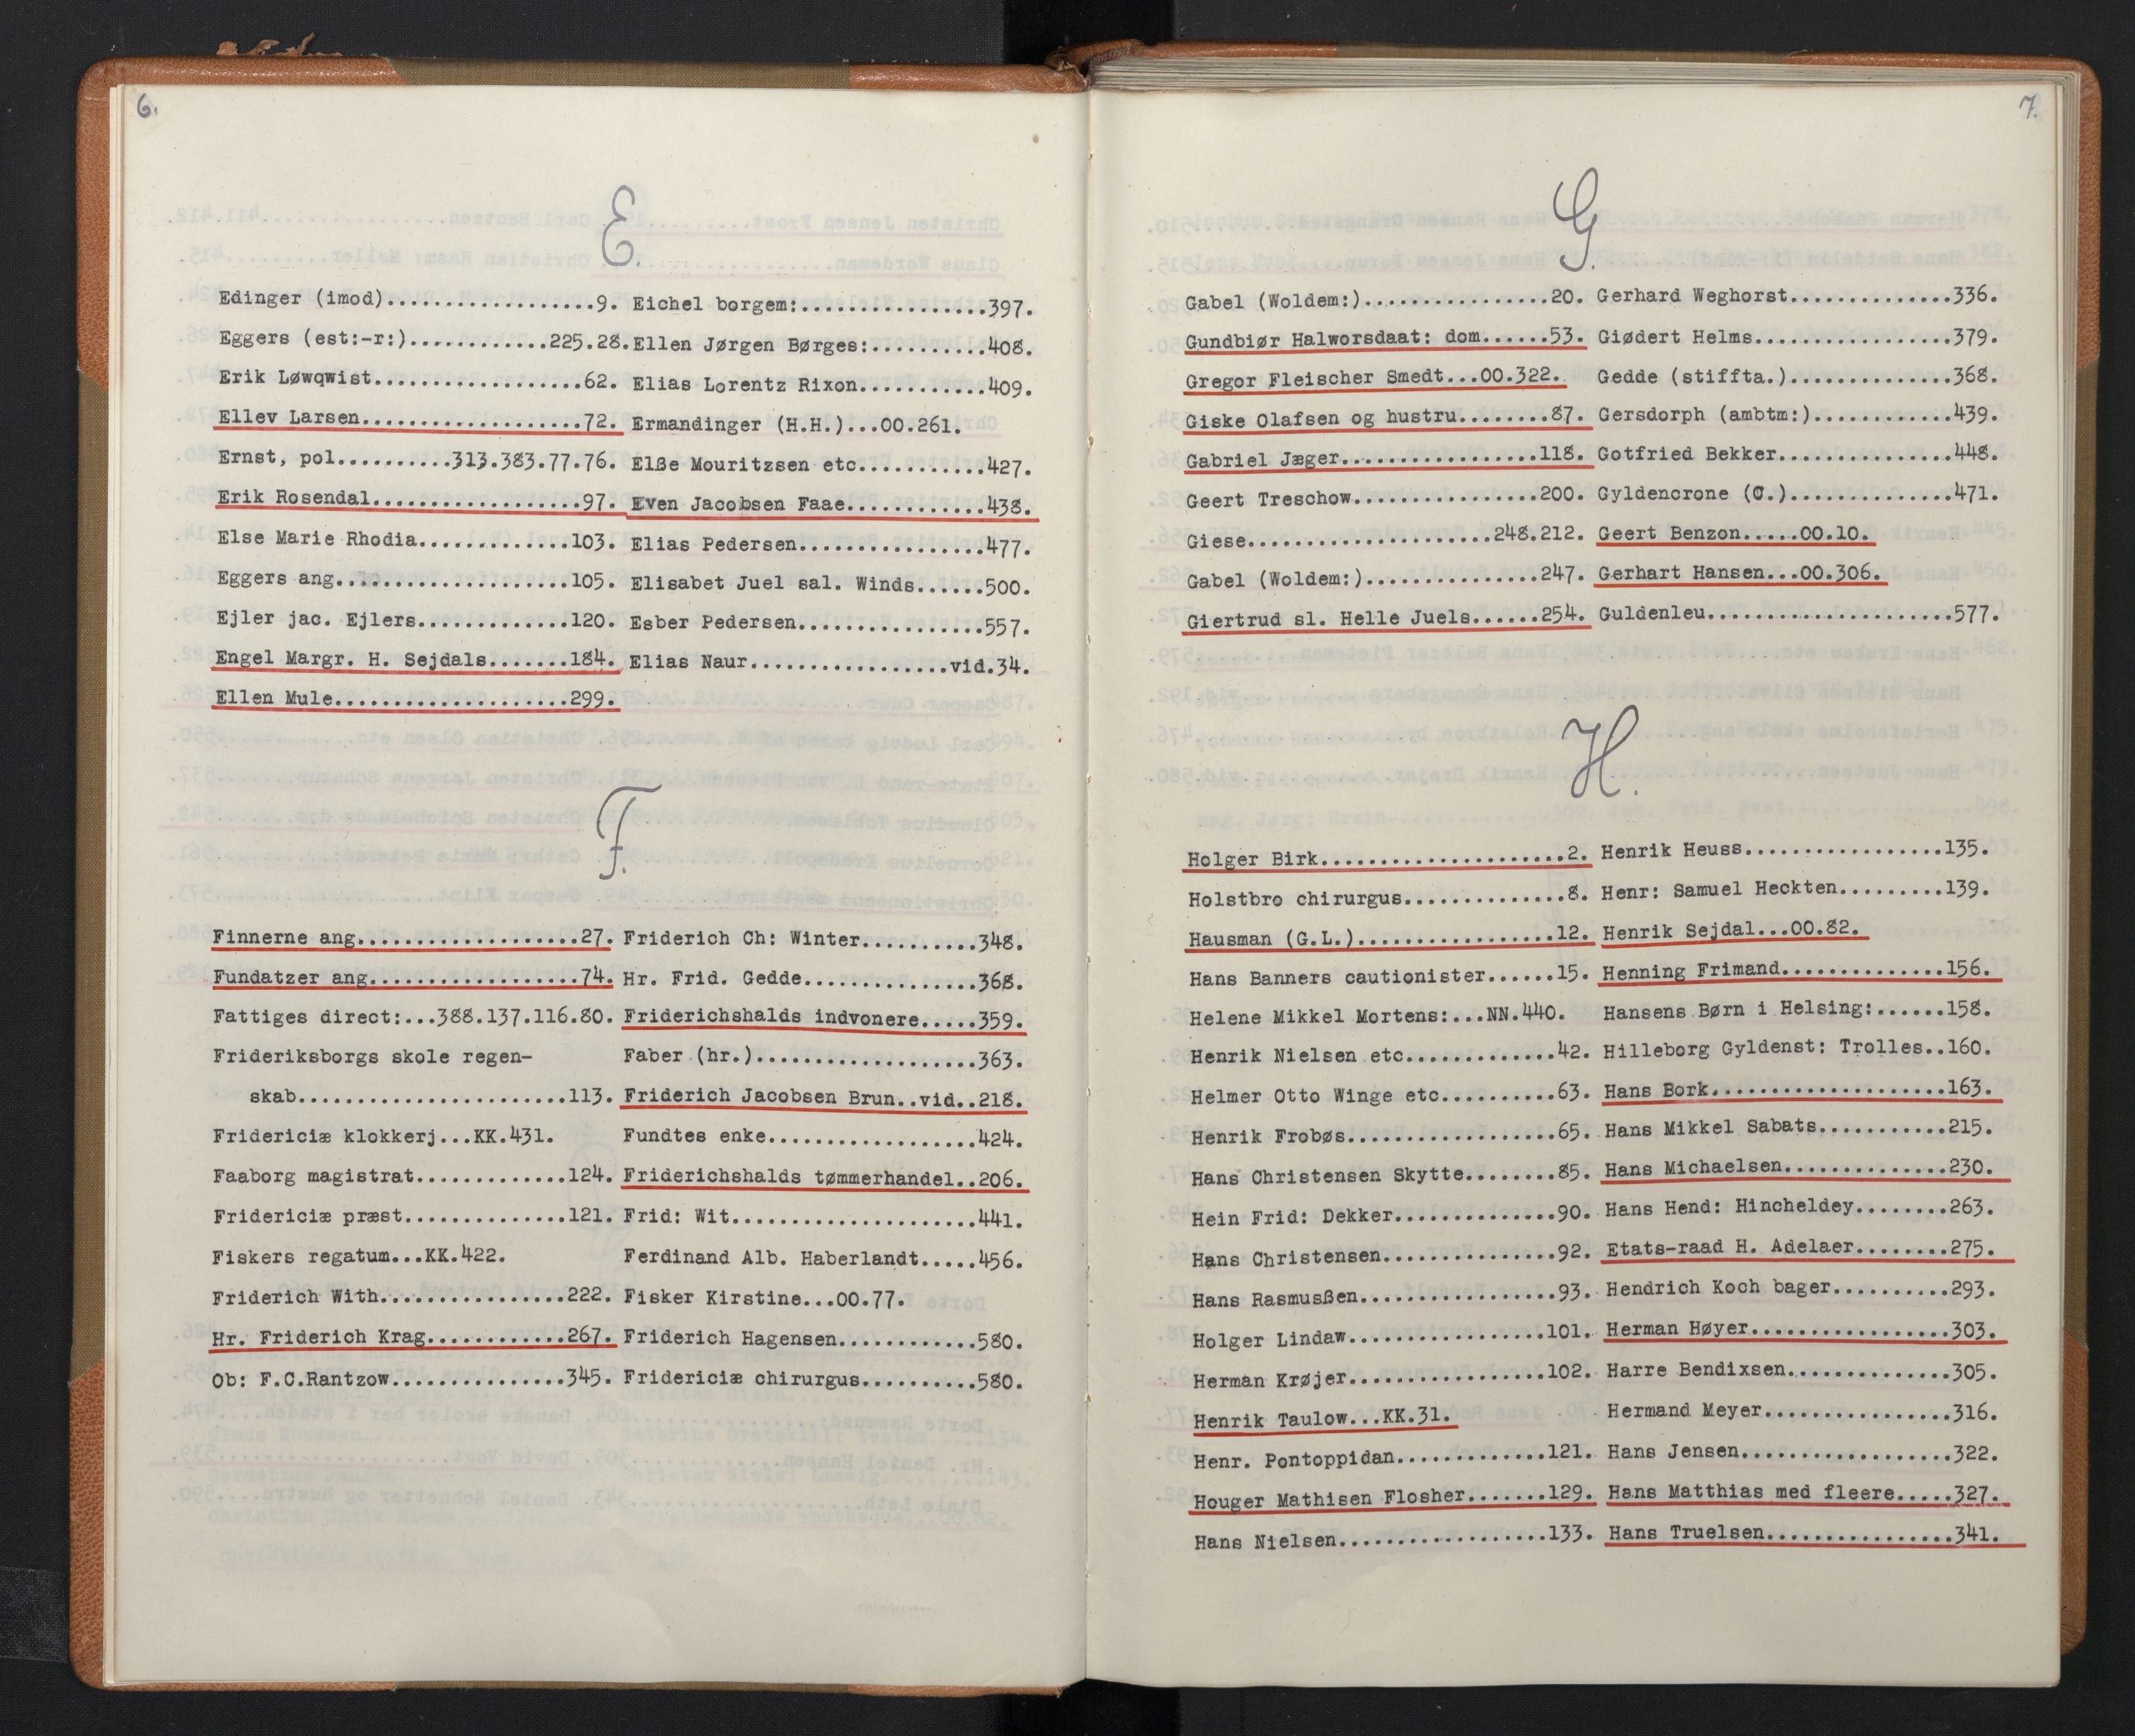 6.
E.
Edinger (imod)..................9.
Eggers (est:-r:)............225.28.
Erik Løwqwist..................62.
Ellev Larsen...................72.
Ernst, pol..........313.383.77.76.
Erik Rosendal..................97.
Else Marie Rhodia.............103.
Eggers ang....................105.
Ejler jac. Ejlers.............120.
Engel Margr. H. Sejdals.......184.
Ellen Mule....................299.
Eichel borgem:................397.
Ellen Jørgen Børges:..........408.
Elias Lorentz Rixon...........409.
Ermandinger (H.H.)...OO.261.
Elße Mouritzsen etc...........427.
Even Jacobsen Faae............438.
Elias Pedersen................477.
Elisabet Juel sal. Winds......500.
Esber Pedersen................557.
Elias Naur.................vid.34.
F.
Finnerne ang...................27.
Fundatzer ang..................74.
Fattiges direct:...388.137.116.80.
Frideriksborgs skole regen-
skab.......................113.
Fridericiæ klokkerj...KK.431.
Faaborg magistrat.............124.
Fridericiæ præst..............121.
Fiskers regatum...KK.422.
Friderich With................222.
Hr. Friderich Krag............267.
Ob: F.C.Rantzow...............345.
Friderich Ch: Winter..........348.
Hr. Frid. Gedde...............368.
Friderichshalds indvonere.....359.
Faber (hr.)...................363.
Friderich Jacobsen Brun..vid..218.
Fundtes enke..................424.
Friderichshalds tømmerhandel..206.
Frid: Wit.....................441.
Ferdinand Alb. Haberlandt.....456.
Fisker Kirstine...OO.77.
Friderich Hagensen............580.
Fridericiæ chirurgus..........580.
7.
G.
Gabel (Woldem:)................20.
Gundbiør Halworsdaat: dom......53.
Gregor Fleischer Smedt...OO.322.
Giske Olafsen og hustru........87.
Gabriel Jæger.................118.
Geert Treschow................200.
Giese.....................248.212.
Gabel (Woldem:)...............247.
Giertrud sl. Helle Juels......254.
Gerhard Weghorst..............336.
Giødert Helms.................379.
Gedde (stiffta.)..............368.
Gersdorph (ambtm:)............439.
Gotfried Bekker...............448.
Gyldencrone (C.)..............471.
Geert Benzon.....OO.10.
Gerhart Hansen...OO.306.
Guldenleu.....................577.
H.
Holger Birk.....................2.
Holstbro chirurgus..............8.
Hausman (G.L.).................12.
Hans Banners cautionister......15.
Helene Mikkel Mortens:...NN.440.
Henrik Nielsen etc.............42.
Helmer Otto Winge etc..........63.
Henrik Frobøs..................65.
Hans Christensen Skytte........85.
Hein Frid: Dekker..............90.
Hans Christensen...............92.
Hans Rasmusßen.................93.
Holger Lindaw.................101.
Herman Krøjer.................102.
Henrik Taulow...KK.31.
Henr. Pontoppidan.............121.
Houger Mathisen Flosher.......129.
Hans Nielsen..................133.
Henrik Heuss.................135.
Henr: Samuel Heckten.........139.
Henrik Sejdal...OO.82.
Henning Frimand..............156.
Hansens Børn i Helsing:......158.
Hilleborg Gyldenst: Trolles..160.
Hans Bork....................163.
Hans Mikkel Sabats...........215.
Hans Michaelsen..............230.
Hans Hend: Hincheldey........263.
Etats-raad H. Adelaer........275.
Hendrich Koch bager..........293.
Herman Høyer.................303.
Harre Bendixsen..............305.
Hermand Meyer................316.
Hans Jensen..................322.
Hans Matthias med fleere.....327.
Hans Truelsen................341.